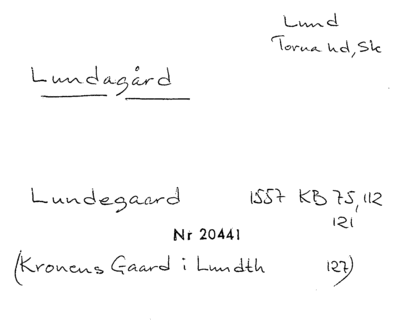 Lund
Torna hd, Sk
Lundagård
Lundegaard 1557 KB 75, 112
121
Nr 20441
(Kronens Gaard i Lundth 127)